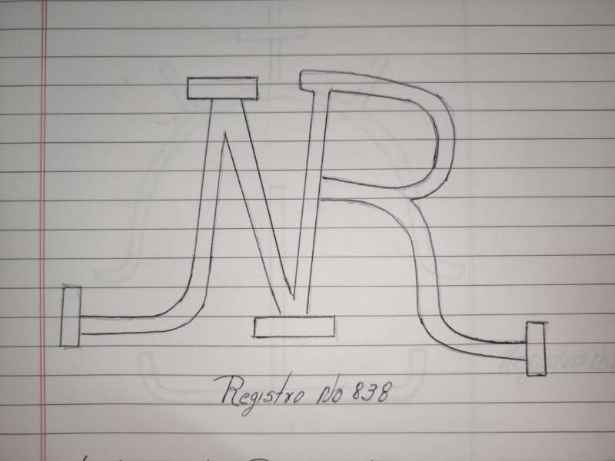 NR
Registro No 838